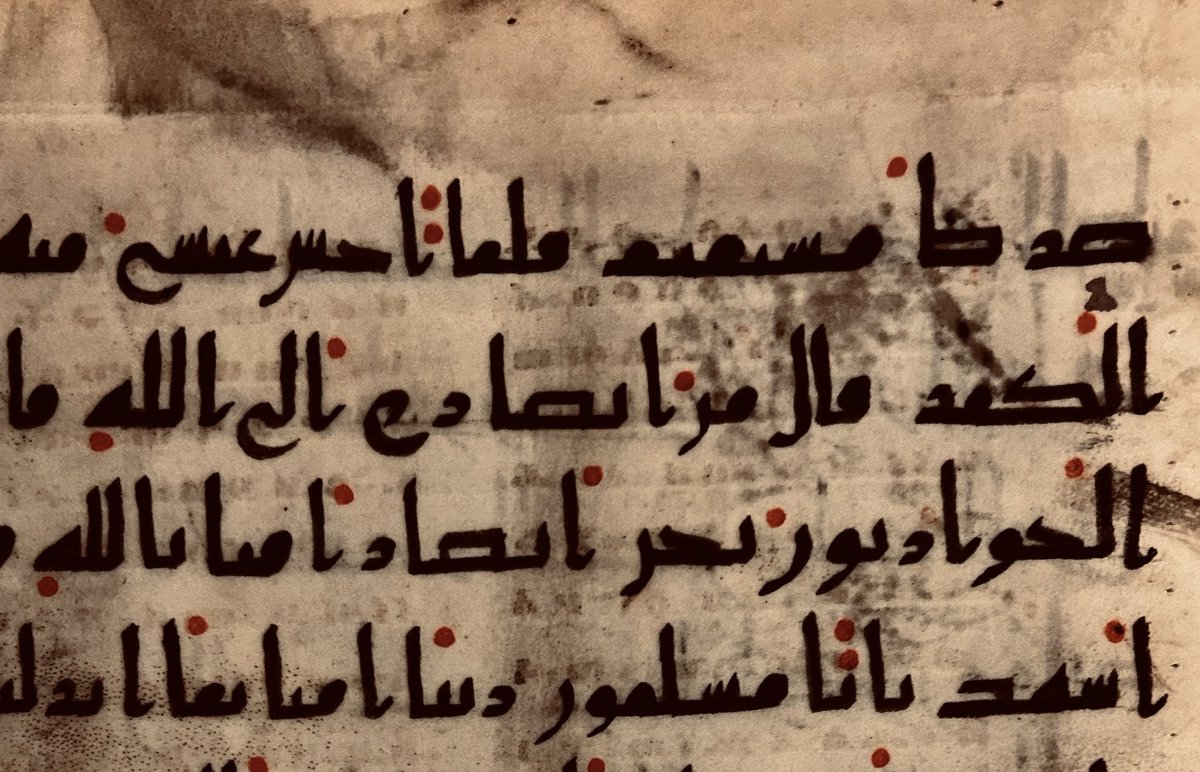 صرط مستقيم فلما احس عيسى منه
الكفر قال من انصاري الى الله قا
الحواريون نحن انصار امنا بالله و
اشهد بانا مسلمون ربنا امنا بما انزل